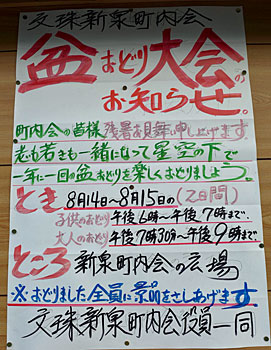 文珠新泉町内会
盆おどり大会の
お知らせ。
町内会の皆様残暑お見舞い申し上げます
老も若きも一緒になって星空の下で
一年に一回の盆おどりを楽しくおどりましょう。
とき 8月14日〜8月15日の(2日間)
子供のおどり午後6時〜午後7時まで.
大人のおどり午後7時30分〜午後9時まで.
ところ 新泉町内会の広場
※おどりました全員に景品をさしあげます
文珠新泉町内会役員一同